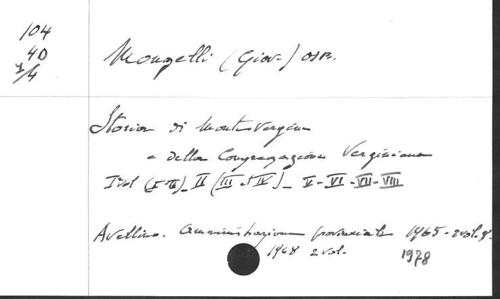 104
4D
1/4
Mongelli (Giov.) OSB.
Storia di Montevergine
e della Congregazione Verginiana
I vol (I-II)_ II (III et IV)_ V-VI-VII-VIII
Avellino. Amministrazione provinciale 1965- 2 vol. 8°
1968 2 vol. 1978